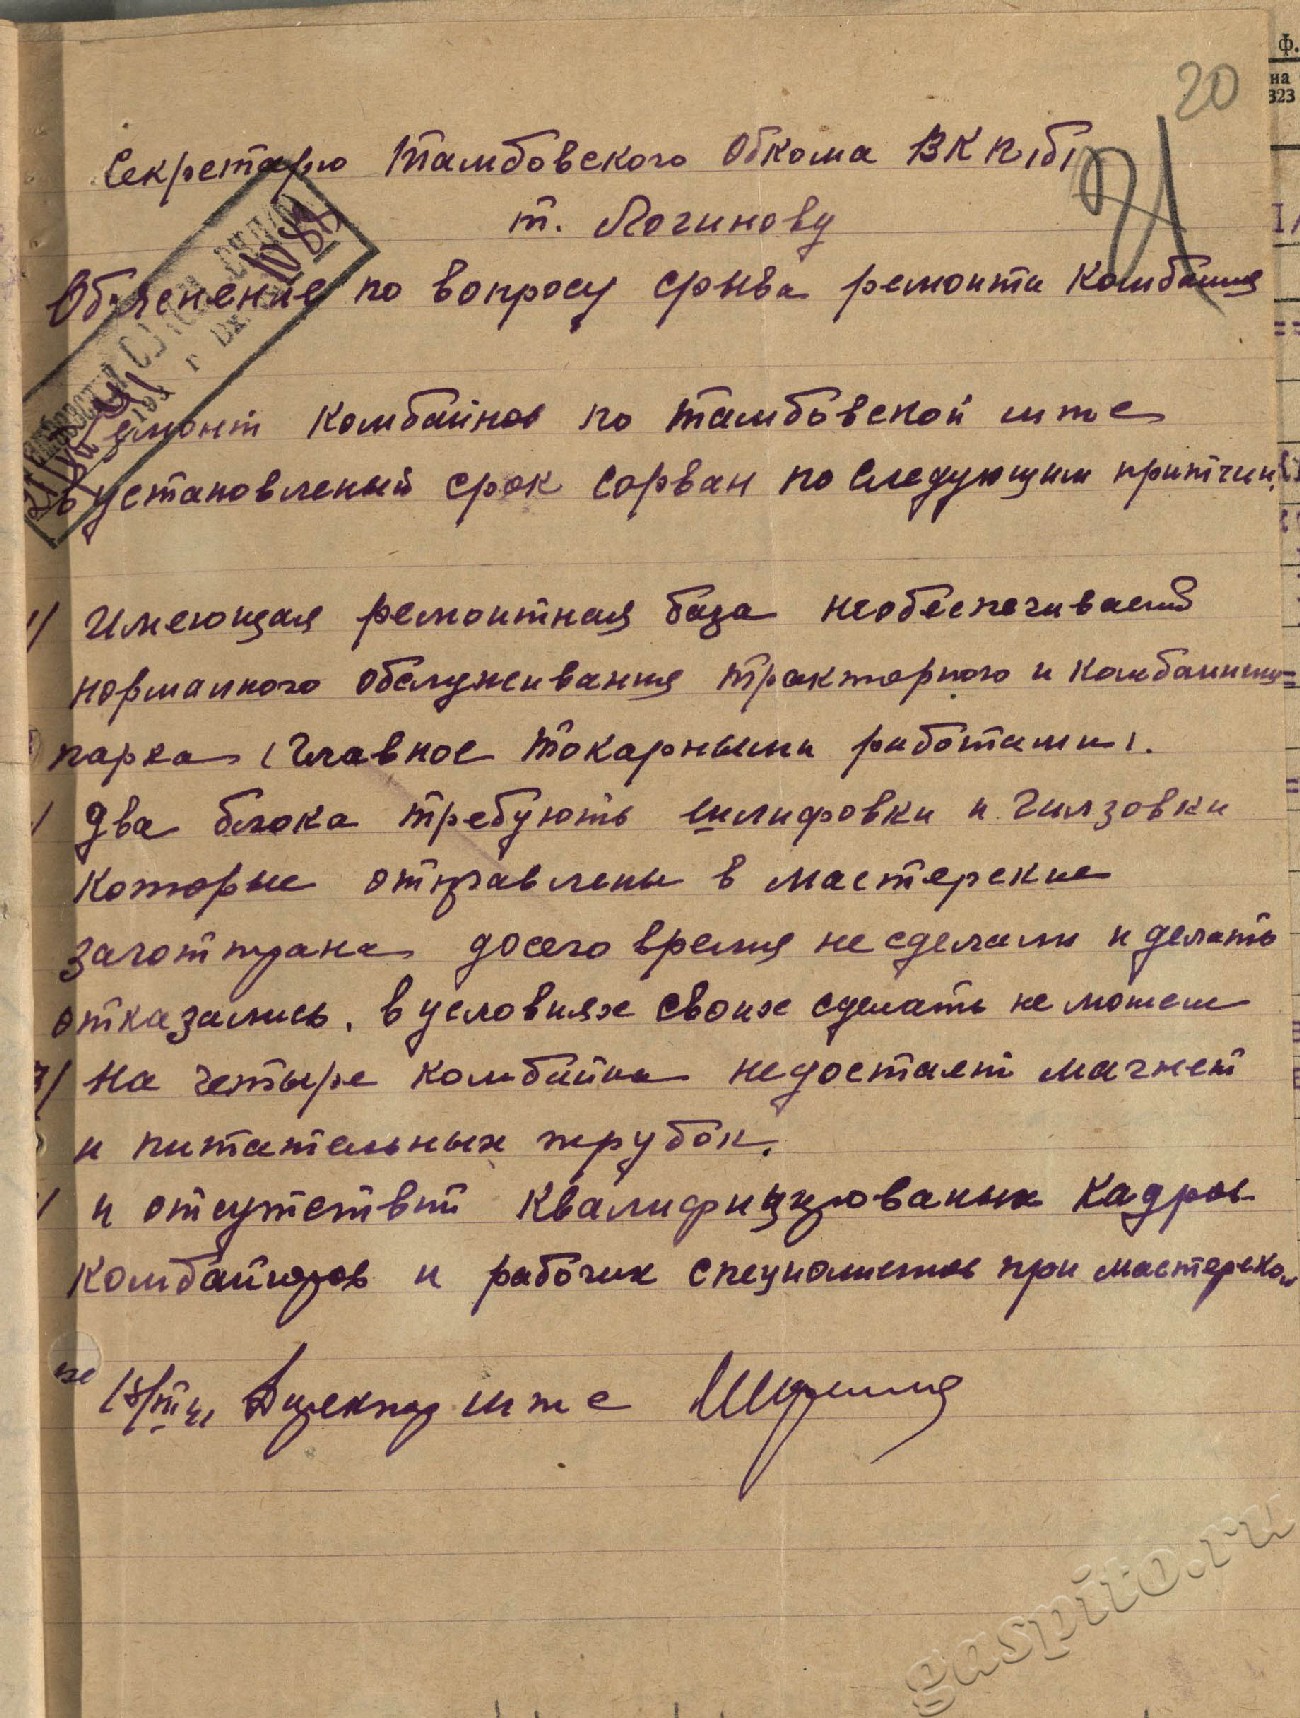 20
Секретарю Тамбовского Обкома ВКП(б)
т. Логинову
Объяснение по вопросу срыва ремонта комбайна
1087
Ремонт комбайнов по Тамбовской мтс
в установленый срок сорван по следующим притчин.
1) Имеющая ремонтная база необеспечивает
нормалного обслуживания тракторного и комбаин
парка (главное токарными работами).
два блока требують шлифовки и гилзовки
которые отправлены в мастерские
заготтранс досего время не сделали и делать
отказались. в условиях своих сделать не можем
3) На четыре комбайна недостает магнет
и питательных трубок.
и отсутствит квалифицированых кадров
комбайнеров и рабочих специалистов при мастерской
Директор мтс
gaspito.ru